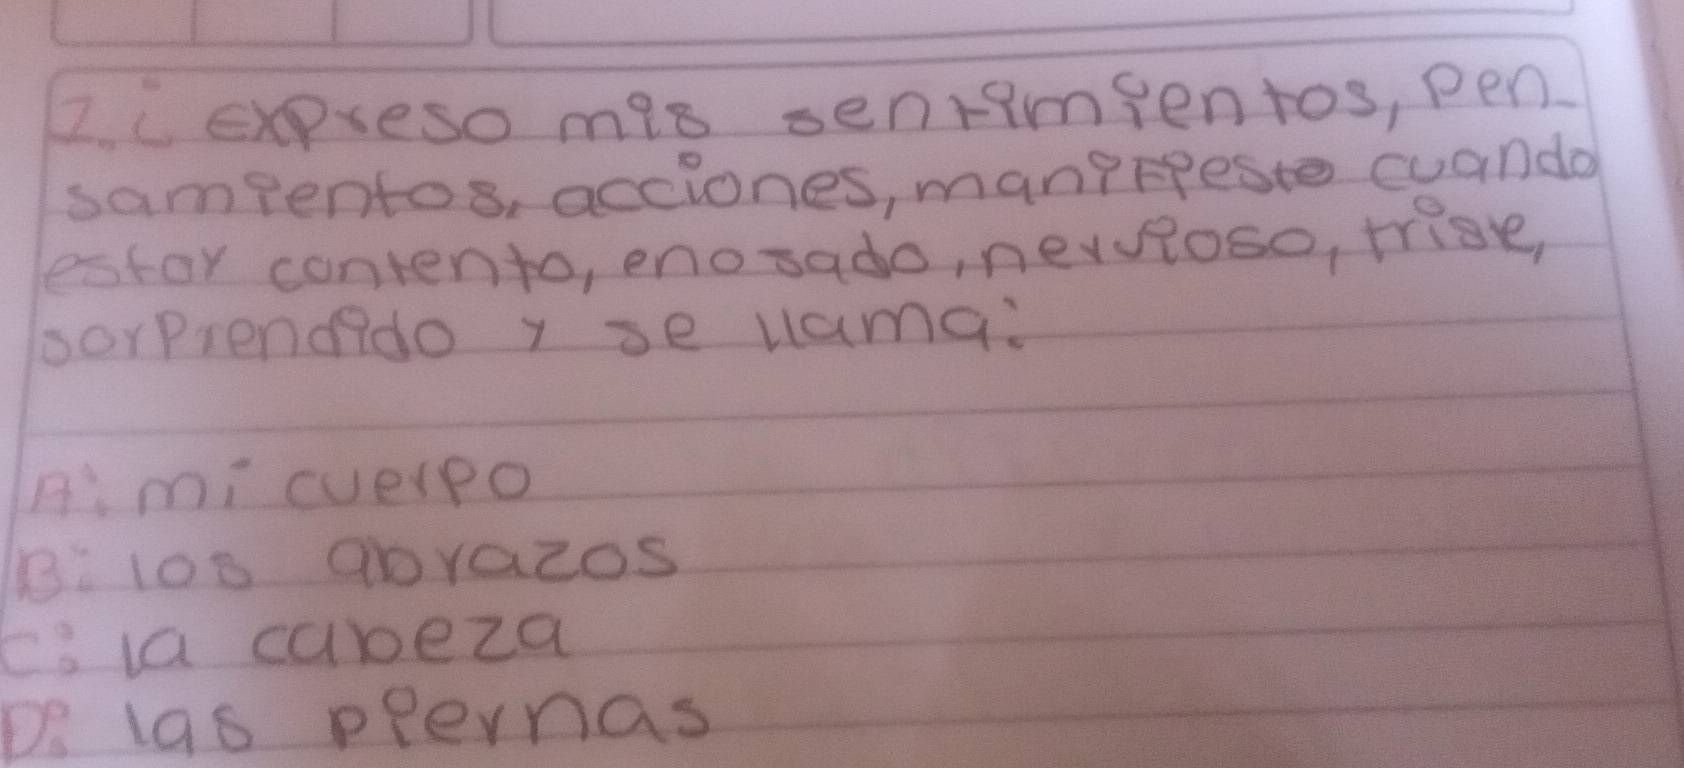 2. ¿ Expreso mis sentimientos, pen-
samientos, acciones, manifieste cuando
estoy contento, enojado, nervioso, triste,
sorprendido y se llama:
A: mi cuerpo
B: los abrazos
C: la cabeza
D: las piernas